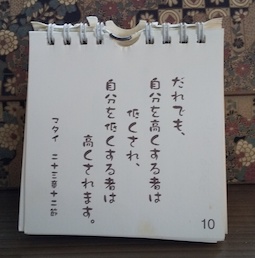 だれでも、
自分を高くする者は
低くされ、
自分を低くする者は
高くされます。
マタイ 二十三章十二節
10